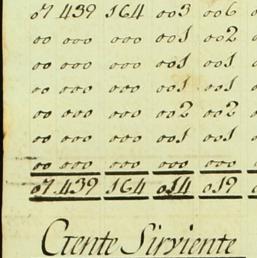 07 439 164 003 006
00 000 000 001 002
00 000 000 001 001
00 000 000 001 001
00 000 000 002 002
00 000 000 001 001
00 000 000 000 000
07 439 164 014 019
Ctente Sirviente